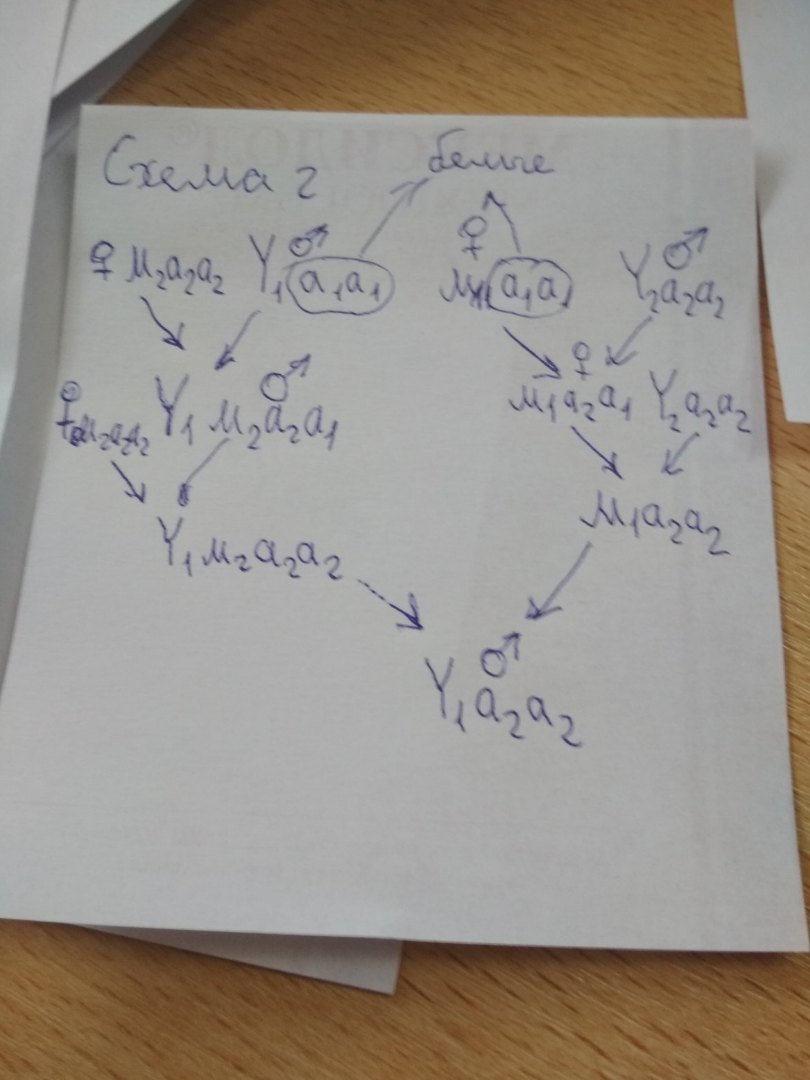 Схема 2 белые
♀ м₂a₂a₂ Y₁♂a₁a₁ ♀ м₁a₁a₁ Y₂♂a₂a₂
♀ м₂a₂a₂ Y₁ м₂a₂a₁ ♂ ♀ м₁a₂a₁ Y₂a₂a₂
Y₁м₂a₂a₂ м₁a₂a₂
Y₁♂a₂a₂